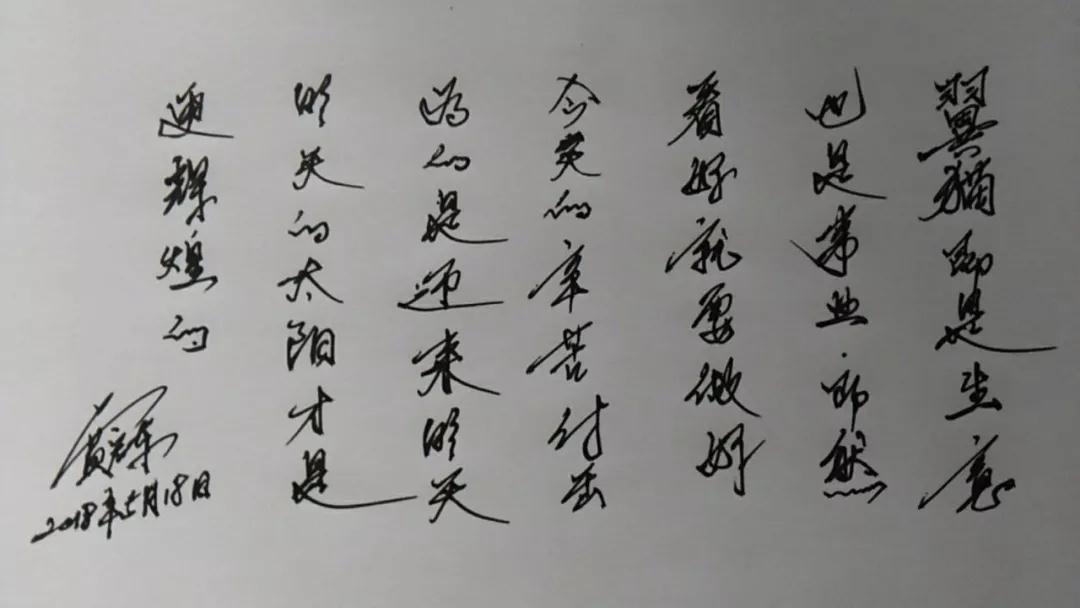 翼猫即是生意
也是事业.即然
看好就要做好
今天的辛苦付出
为的是迎来明天
明天的太阳才是
更辉煌的
2018年5月18日